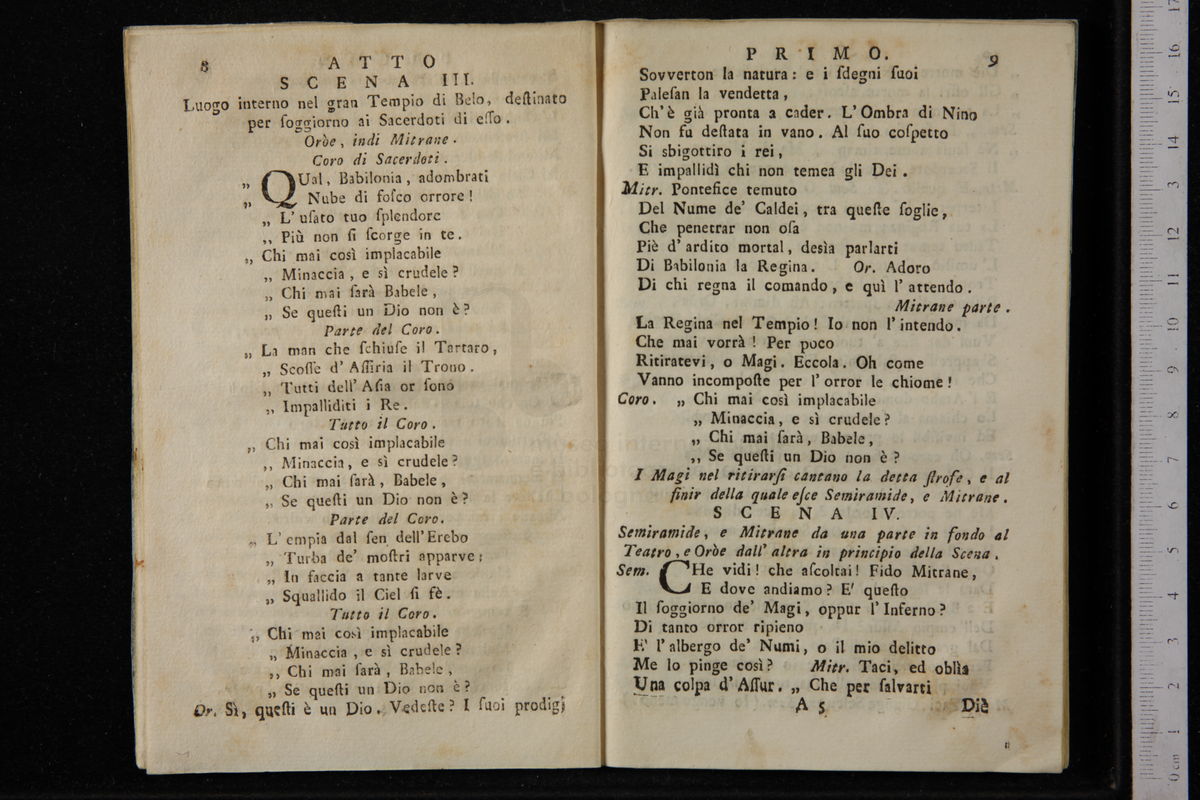 8
ATTO
SCENA III.
Luogo interno nel gran Tempio di Belo, deſtinato
per ſoggiorno ai Sacerdoti di eſſo.
Oròe, indi Mitrane.
Coro di Sacerdoti.
„ QUal, Babilonia, adombrati
„ Nube di foſco orrore!
„ L' uſato tuo ſplendore
„ Più non ſi ſcorge in te.
„ Chi mai così implacabile
„ Minaccia, e sì crudele?
„ Chi mai ſarà Babele,
„ Se queſti un Dio non è?
Parte del Coro.
„ La man che ſchiuſe il Tartaro,
„ Scoſſe d' Aſſiria il Trono.
„ Tutti dell' Aſia or ſono
„ Impalliditi i Re.
Tutto il Coro.
„ Chi mai così implacabile
„ Minaccia, e sì crudele?
„ Chi mai ſarà, Babele,
„ Se queſti un Dio non è?
Parte del Coro.
„ L' empia dal ſen dell' Erebo
„ Turba de' moſtri apparve:
„ In faccia a tante larve
„ Squallido il Ciel ſi fè.
Tutto il Coro.
„ Chi mai così implacabile
„ Minaccia, e sì crudele?
„ Chi mai ſarà, Babele,
„ Se queſti un Dio non è?
Or. Sì, queſti è un Dio. Vedeſte? I ſuoi prodigj
PRIMO.
9
Sovverton la natura: e i ſdegni ſuoi
Paleſan la vendetta,
Ch'è già pronta a cader. L'Ombra di Nino
Non fu deſtata in vano. Al ſuo coſpetto
Si sbigottiro i rei,
E impallidì chi non temea gli Dei.
Mitr. Pontefice temuto
Del Nume de' Caldei, tra queſte ſoglie,
Che penetrar non oſa
Piè d' ardito mortal, desìa parlarti
Di Babilonia la Regina. Or. Adoro
Di chi regna il comando, e quì l' attendo.
Mitrane parte.
La Regina nel Tempio! Io non l' intendo.
Che mai vorrà! Per poco
Ritiratevi, o Magi. Eccola. Oh come
Vanno incompoſte per l' orror le chiome!
Coro. „ Chi mai così implacabile
„ Minaccia, e sì crudele?
„ Chi mai ſarà, Babele,
„ Se queſti un Dio non è?
I Magi nel ritirarſi cantano la detta ſtrofe, e al
finir della quale eſce Semiramide, e Mitrane.
SCENA IV.
Semiramide, e Mitrane da una parte in fondo al
Teatro, e Oròe dall' altra in principio della Scena.
Sem. CHe vidi! che aſcoltai! Fido Mitrane,
E dove andiamo? E' queſto
Il ſoggiorno de' Magi, oppur l' Inferno?
Di tanto orror ripieno
E' l' albergo de' Numi, o il mio delitto
Me lo pinge così? Mitr. Taci, ed oblìa
Una colpa d' Aſſur. „ Che per ſalvarti
A 5
Diè